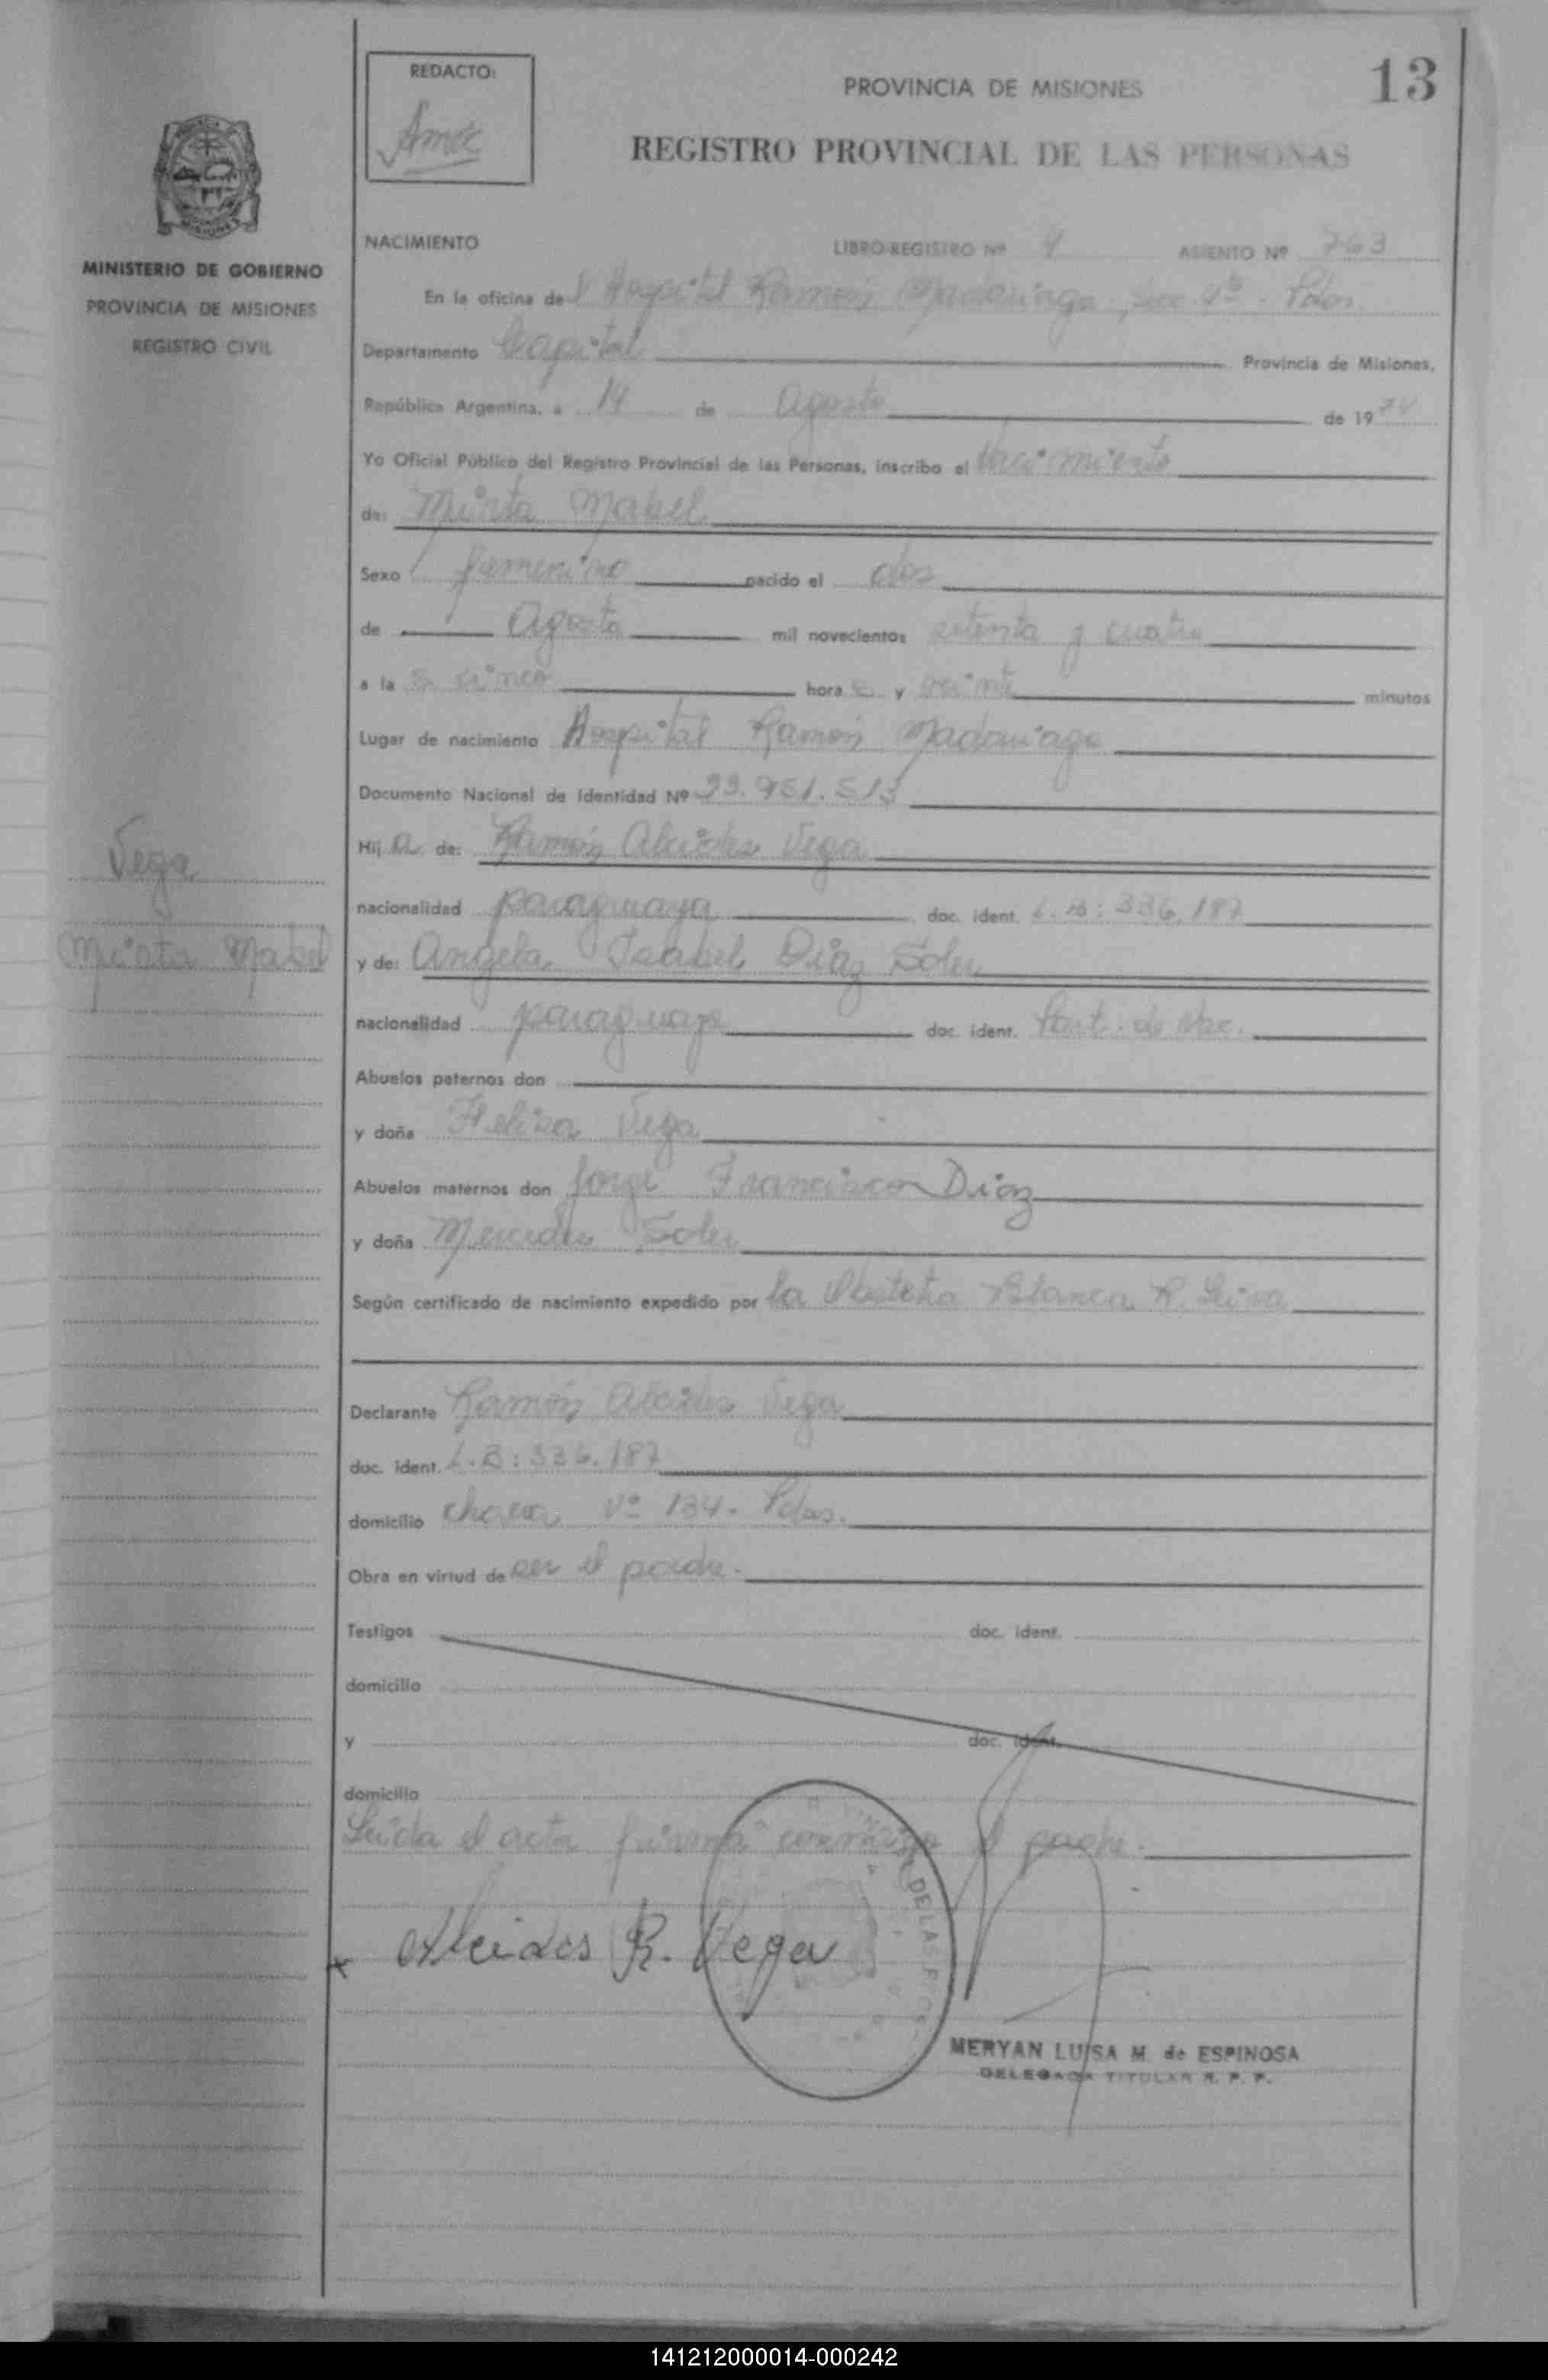 REDACTO:
PROVINCIA DE MISIONES
13
REGISTRO PROVINCIAL DE LAS PERSONAS
MINISTERIO DE GOBIERNO
PROVINCIA DE MISIONES
REGISTRO CIVIL
NACIMIENTO LIBRO-REGISTRO Nº 4 ASIENTO Nº 763
En la oficina del Hospital Ramón Madariaga, Sec 4ª - Pdas.
Departamento Capital Provincia de Misiones,
República Argentina, a 14 de Agosto de 1974
Yo Oficial Público del Registro Provincial de las Personas, inscribo el Nacimiento
de: Mirta Mabel
Sexo femenino nacido el dos
de Agosto mil novecientos setenta y cuatro
a la s cinco hora s y veinte minutos
Lugar de nacimiento Hospital Ramón Madariaga
Documento Nacional de Identidad Nº 23.951.515
Hij a de: Ramón Alcides Vega
Vega
Mirta Mabel
nacionalidad paraguaya doc. ident. L.B: 336.187
y de: Angela Isabel Díaz Soler
nacionalidad paraguaya doc. ident. Part. de Nac.
Abuelos paternos don
y doña Vega
Abuelos maternos don Jorge Francisco Díaz
y doña Mercedes Soler
Según certificado de nacimiento expedido por la Obstetra Blanca R. Leiva
Declarante Ramón Alcides Vega
doc. ident. L.B: 336.187
domicilio chacra Nº 134- Pdas.
Obra en virtud de ser el padre.
Testigos doc. ident.
domicilio
y doc. ident.
domicilio
Leída el acta firma conmigo el padre.
DE LAS
x Alcides R. Vega
MERYAN LUISA M. de ESPINOSA
DELEGADA TITULAR R. P. P.
141212000014-000242